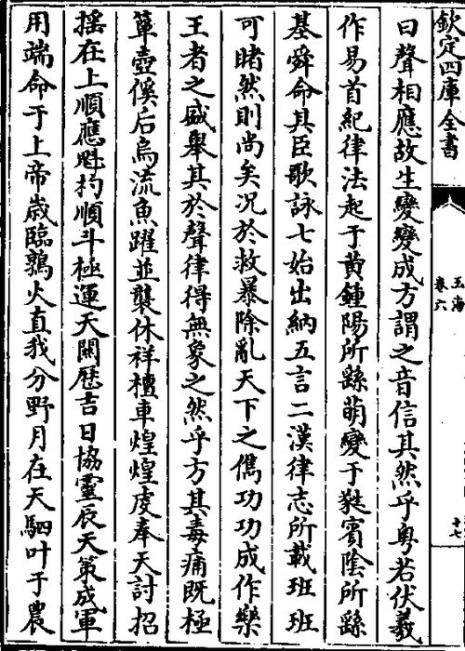 欽定四庫全書
玉海
卷六
十七
曰聲相應故生變變成方謂之音信其然乎粤若伏羲
作易首紀律法起于黄鍾陽所繇萌變于蕤賓陰所繇
基舜命其臣歌詠七始出納五言二漢律志所載班班
可睹然則尚矣况於救暴除亂天下之儁功功成作樂
王者之盛舉其於聲律得無象之然乎方其毒痡既極
簞壺徯后烏流魚躍並襲休祥檀車煌煌虔奉天討招
揺在上順應魁杓順斗極運天闗歴吉日協靈辰天策成軍
用端命于上帝歳臨鶉火直我分野月在天駟叶于農